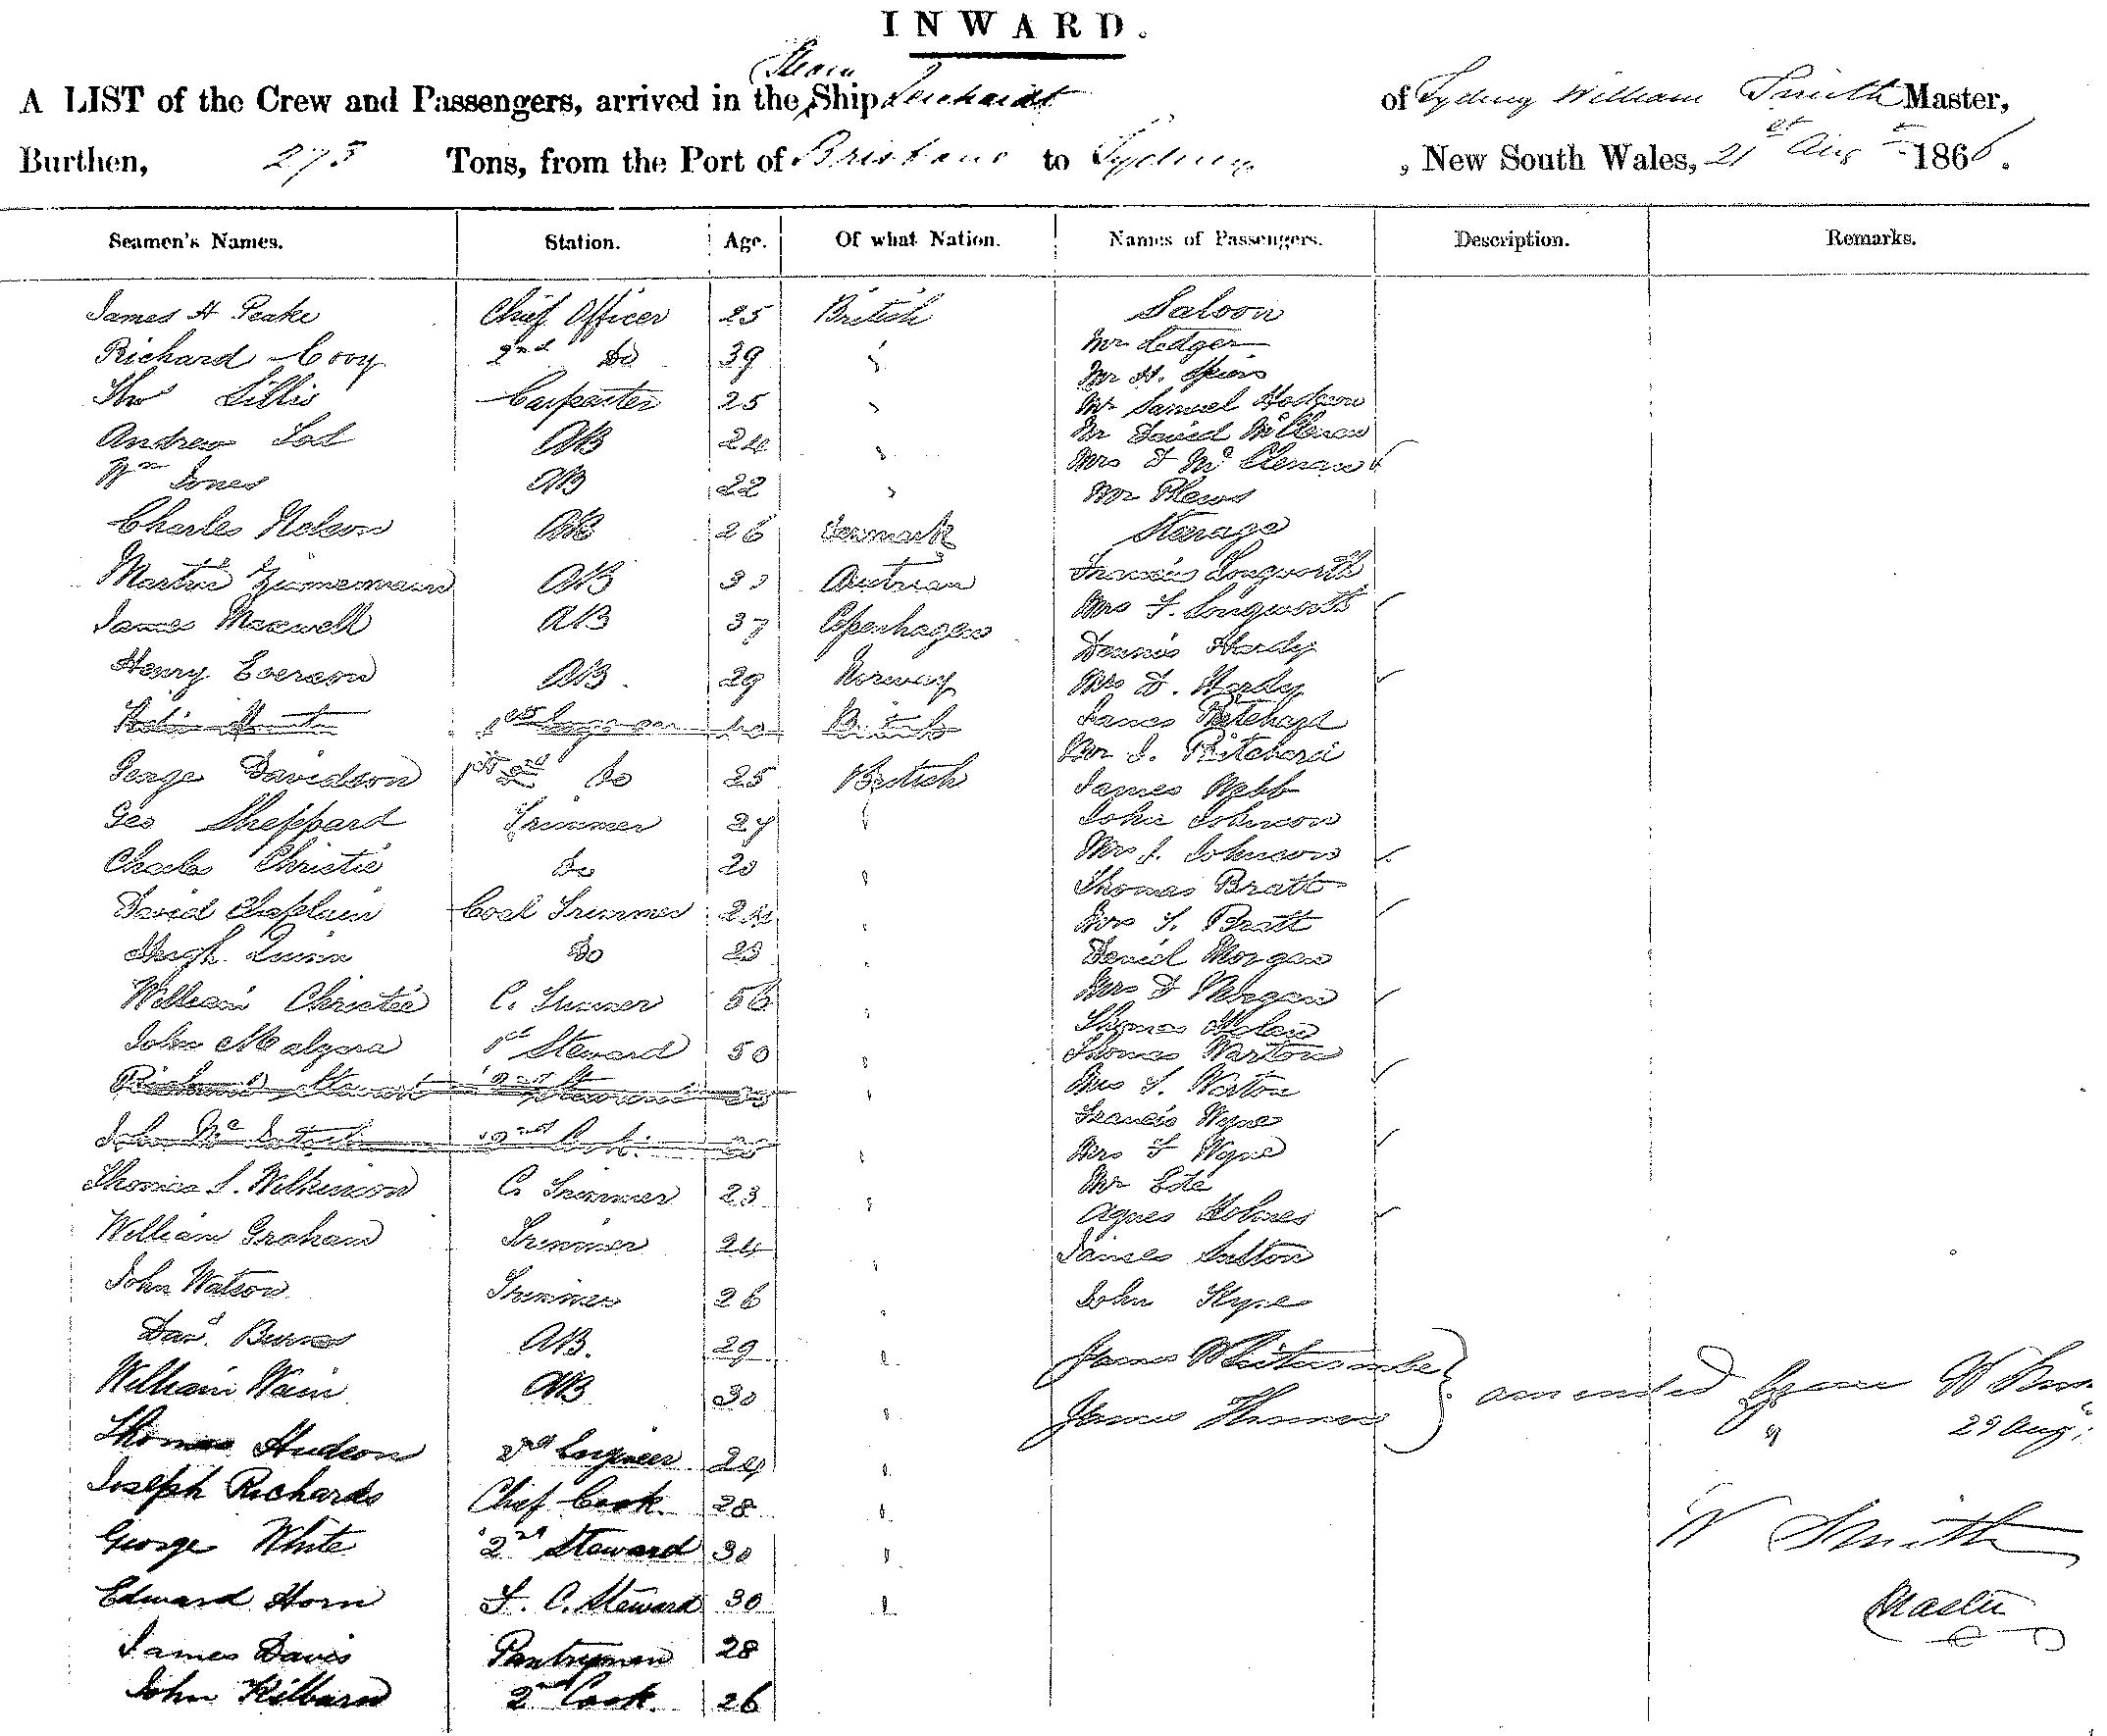 INWARD.
A LIST of the Crew and Passengers, arrived in the Steam Ship Leichardt of Sydney William Smith Master,
Burthen, 273 Tons, from the Port of Brisbane to Sydney, New South Wales, 21st Augt 1866.
Seamen's Names. Station. Age. Of what Nation. Names of Passengers. Description. Remarks.
James H Peake Chief Officer 25 British Saloon
Richard 2nd Do 39 " Mr Ledger
Thos Lillis Carpenter 25 " Mr H. Spiers
Mr Samuel Hodgson
Andrew AB 24 " Mr David McClenan
Mrs D McClenan
Wm Jones AB 22 " Mr Plews
Charles Nelson AB 26 Denmark Steerage
Martin Zimmermann AB Austrian Francis Longworth
Mrs F. Longworth
James Maxwell AB 37 Copenhagen Dennis Hardy
Henry Everson AB 29 Norway Mrs D. Hardy
British James Pritchard
J. Pritchard
George Davidson 1st 2nd Do 25 British James Webb
Geo Sheppard Trimmer 27 " John Johnson
Charles Christie Do 20 " Mrs J. Johnson
Thomas Bratt
David Chaplain Coal Trimmer 24 " Mrs T. Bratt
Hugh Quinn Do 23 " David Morgan
William Christie C. Trimmer 56 " Mrs D Morgan
Thomas Nolan
John Malgara 1st Steward 50 " Thomas Warton
Richard Stewart 2nd Steward " Mrs T. Warton
Francis Wyne
John Mc 2nd Cook " Mrs F Wyne
Thomas S. Wilkinson C. Trimmer 23 " Mr Ede
Agnes Holmes
William Graham Trimmer 24 " James Sutton
John Watson Trimmer 26 " John Kyne
Dand. Burns AB. 29 " James Whitcombe
William Wain AB 30 " James Thomas amended
29 Aug
Thomas Hudson 2nd Engineer 24 "
Joseph Richards Chief Cook 28 "
George White 2nd Steward 30 " W Smith
Edward Horn F. C. Steward 30 " Master
James Davis Pantryman 28
John Kilbard 2nd Cook 26